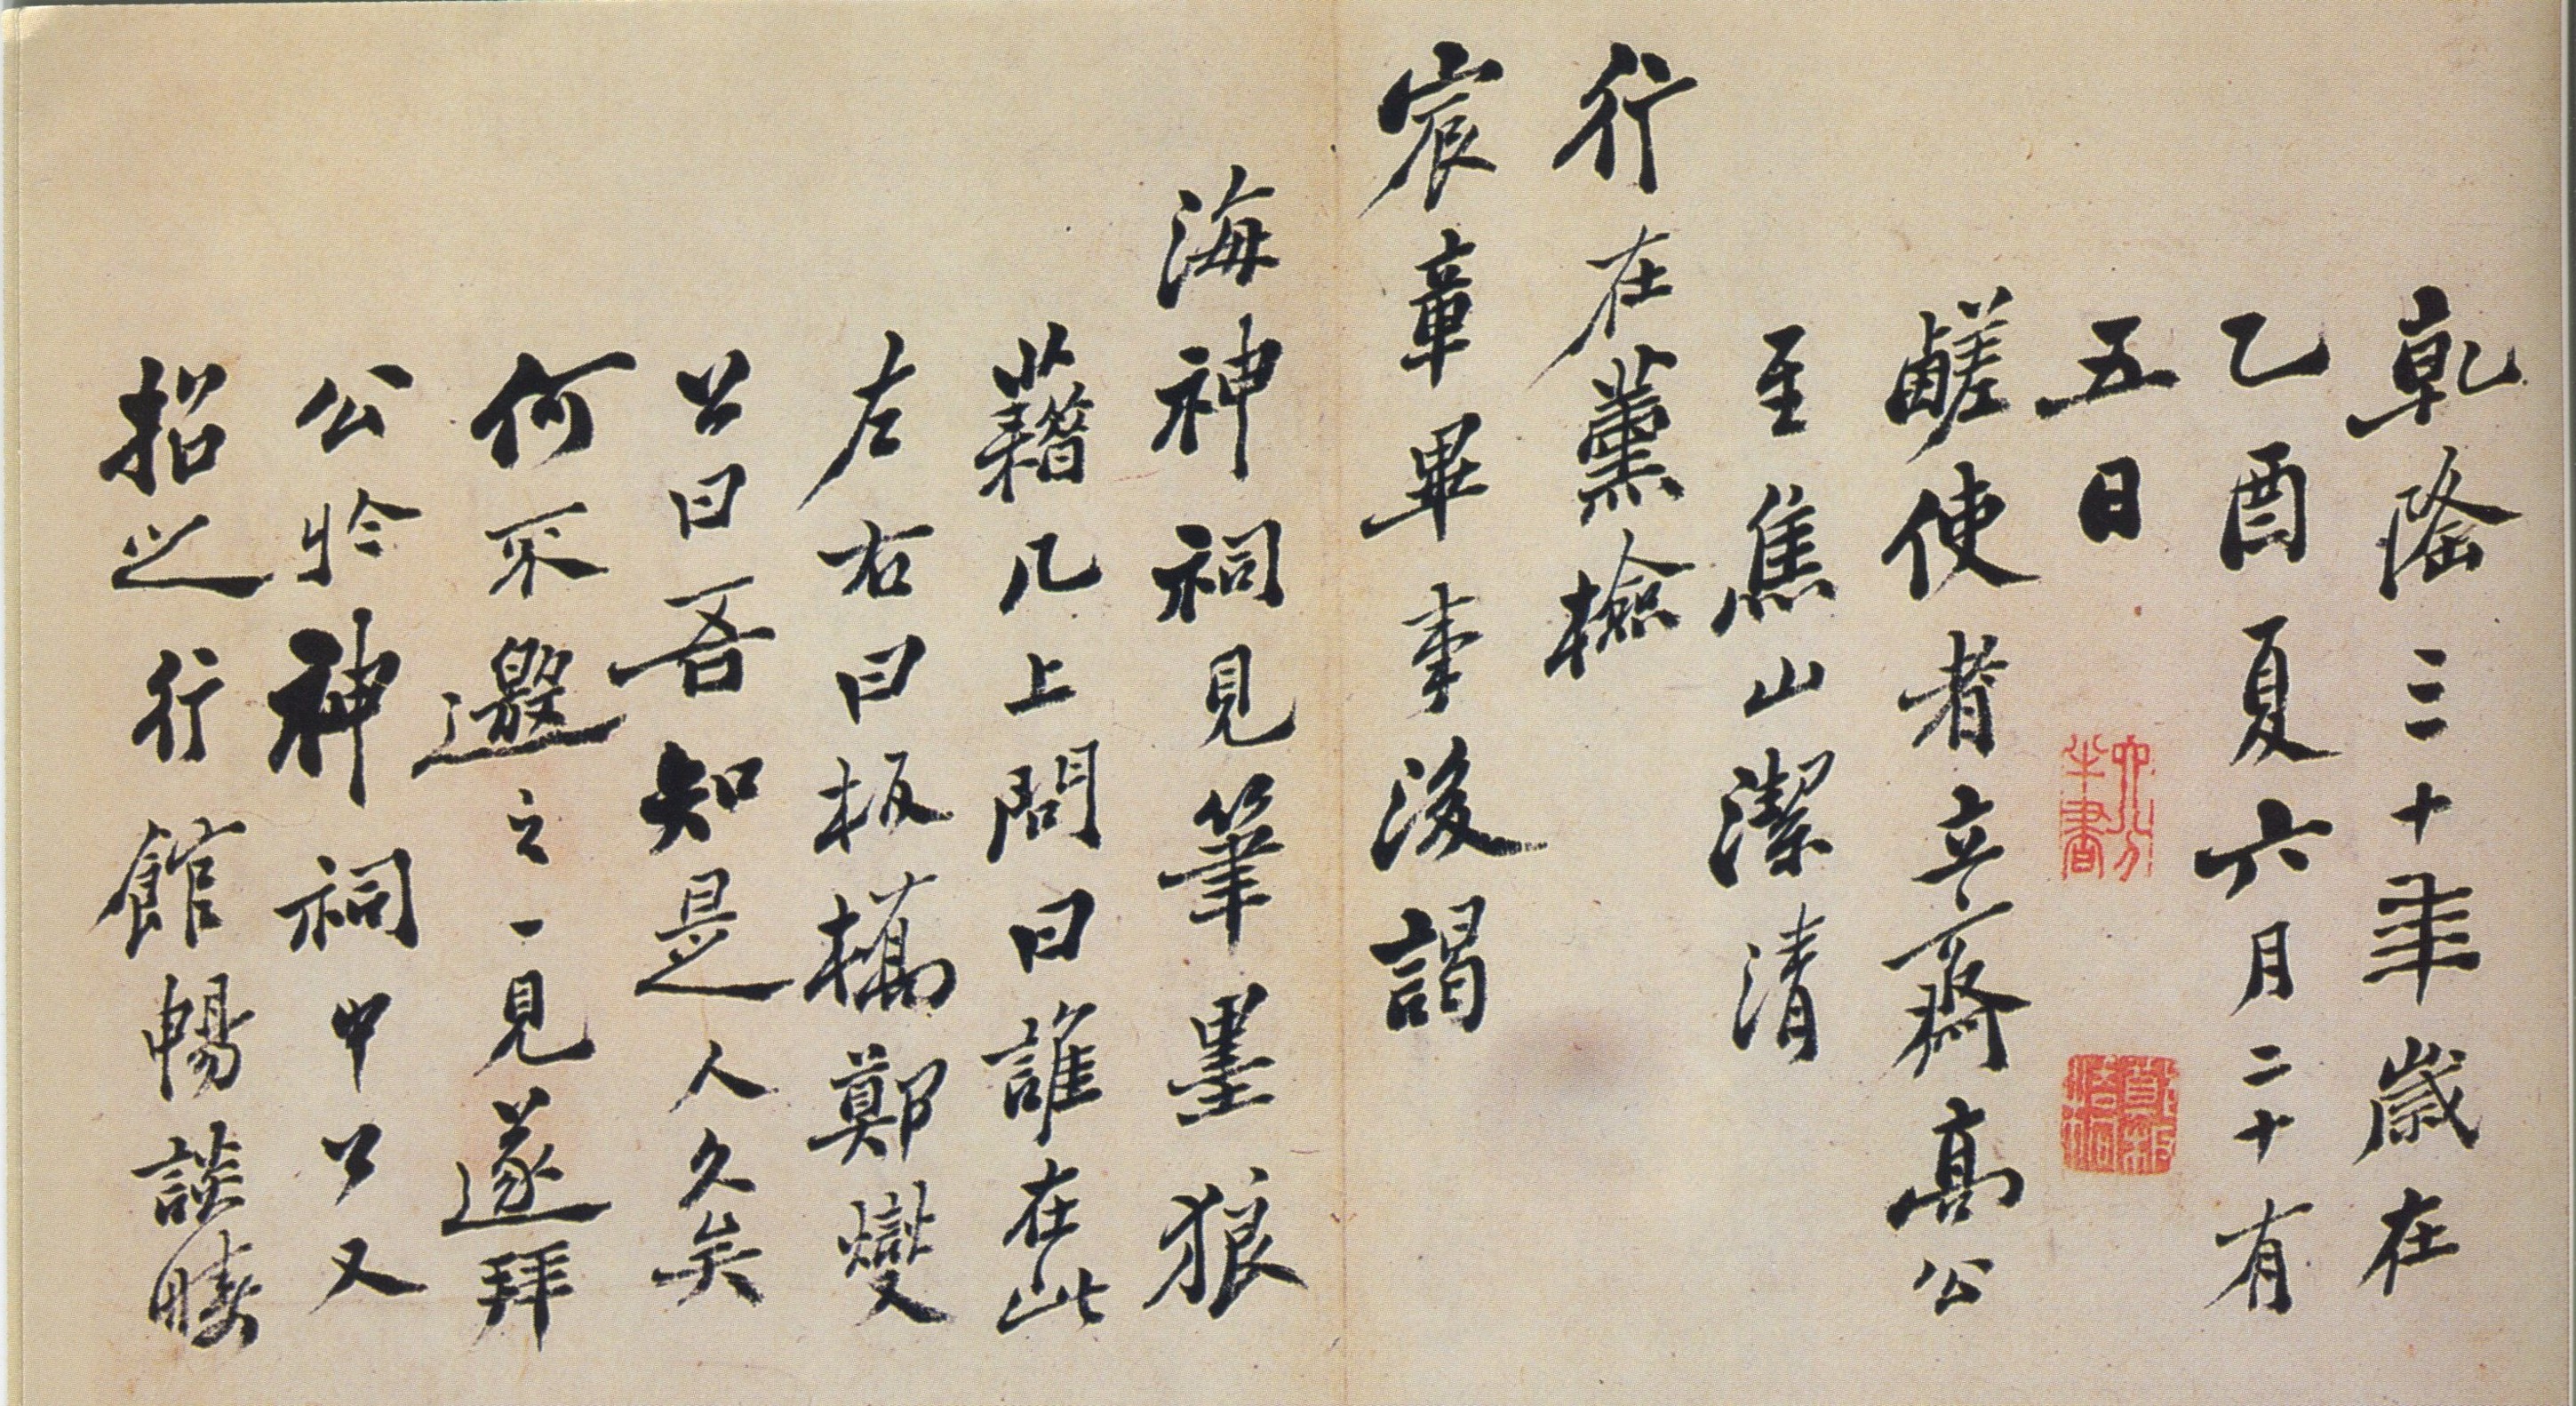 乾隆三十年歲在
乙酉夏六月二十有
五日
鹺使者立齋高公
至焦山潔清
行在薰檢
宸章畢事後謁
海神祠見筆墨狼
藉几上問曰誰在此
左右曰板橋鄭燮
公曰吾知是人久矣
何不邀之一見遂拜
公於神祠中公又
招之行館暢談
六分半書